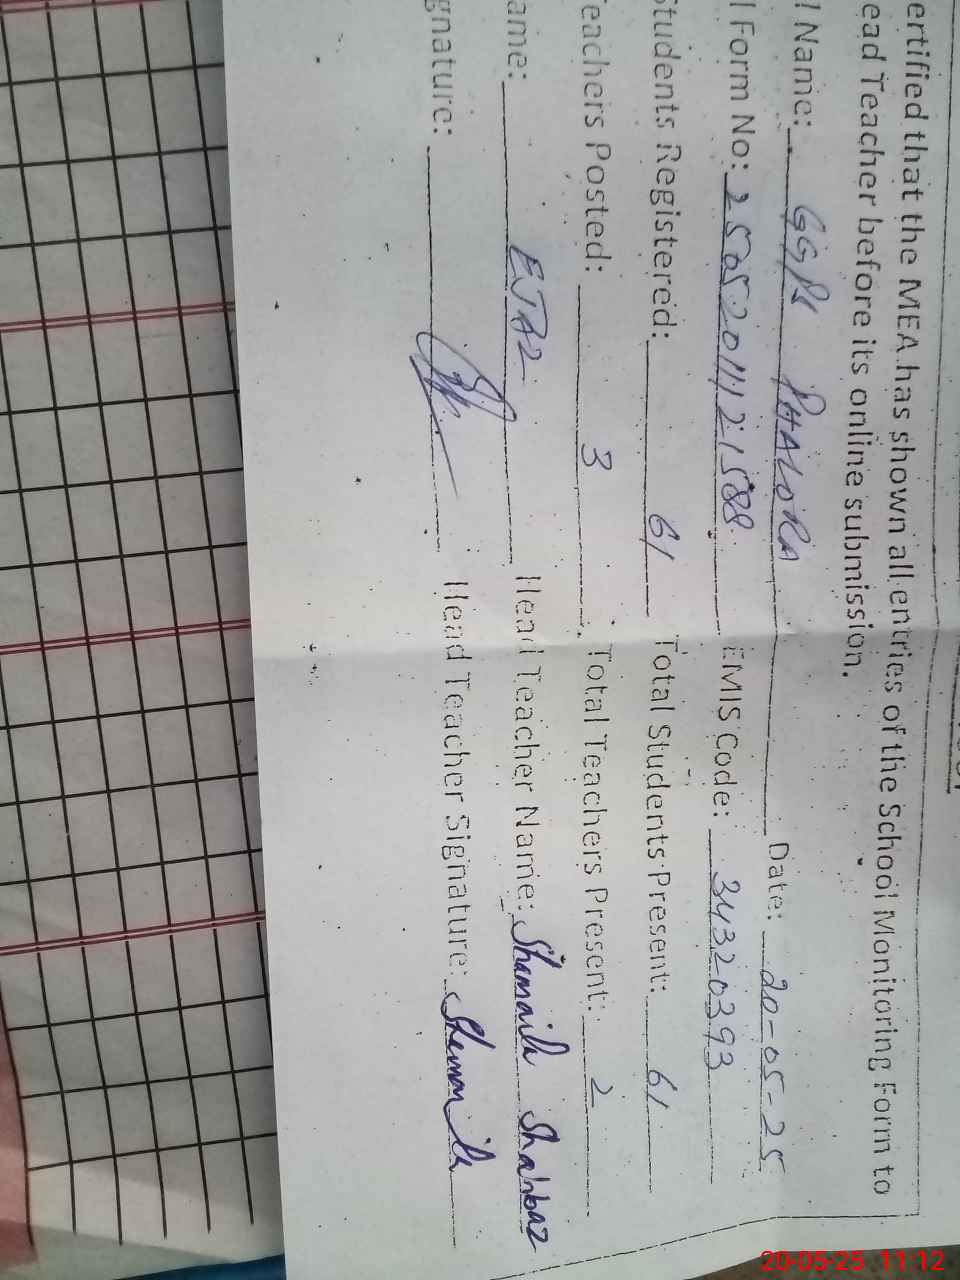 ertified that the MEA has shown all entries of the School Monitoring Form to
ead Teacher before its online submission.
l Name: GGPS PHALORA Date: 20-05-25
l Form No: 25052011121588 EMIS Code: 34320393
Students Registered: 61 Total Students Present: 61
eachers Posted: 3 Total Teachers Present: 2
ame: EJAZ Head Teacher Name: Shamaila Shahbaz
gnature: Head Teacher Signature: Shamaila
20-05-25 11:12